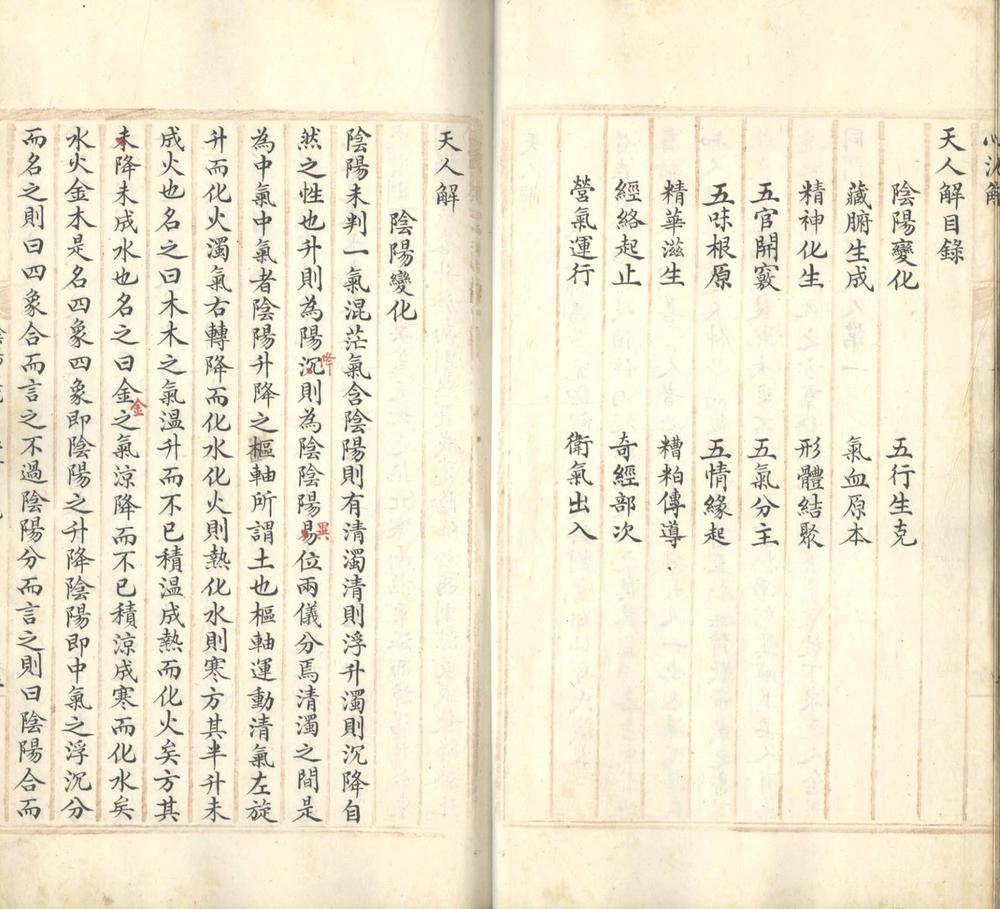 天人解目錄
陰陽變化 五行生克
藏腑生成 氣血原本
精神化生 形體結聚
五官開竅 五氣分主
五味根原 五情緣起
精華滋生 糟粕傳導
經絡起止 奇經部次
營氣運行 衛氣出入
天人解
陰陽變化
陰陽未判一氣混茫氣含陰陽則有清濁清則浮升濁則沉降自
然之性也升則為陽沉降則為陰陰陽易異位兩儀分焉清濁之間是
為中氣中氣者陰陽升降之樞軸所謂土也樞軸運動清氣左旋
升而化火濁氣右轉降而化水化火則熱化水則寒方其半升未
成火也名之曰木木之氣溫升而不已積溫成熱而化火矣方其
降未成水也名之曰金金之氣涼降而不已積涼成寒而化水矣
水火金木是名四象四象即陰陽之升降陰陽即中氣之浮沉分
而名之則曰四象合而言之不過陰陽分而言之則曰陰陽合而